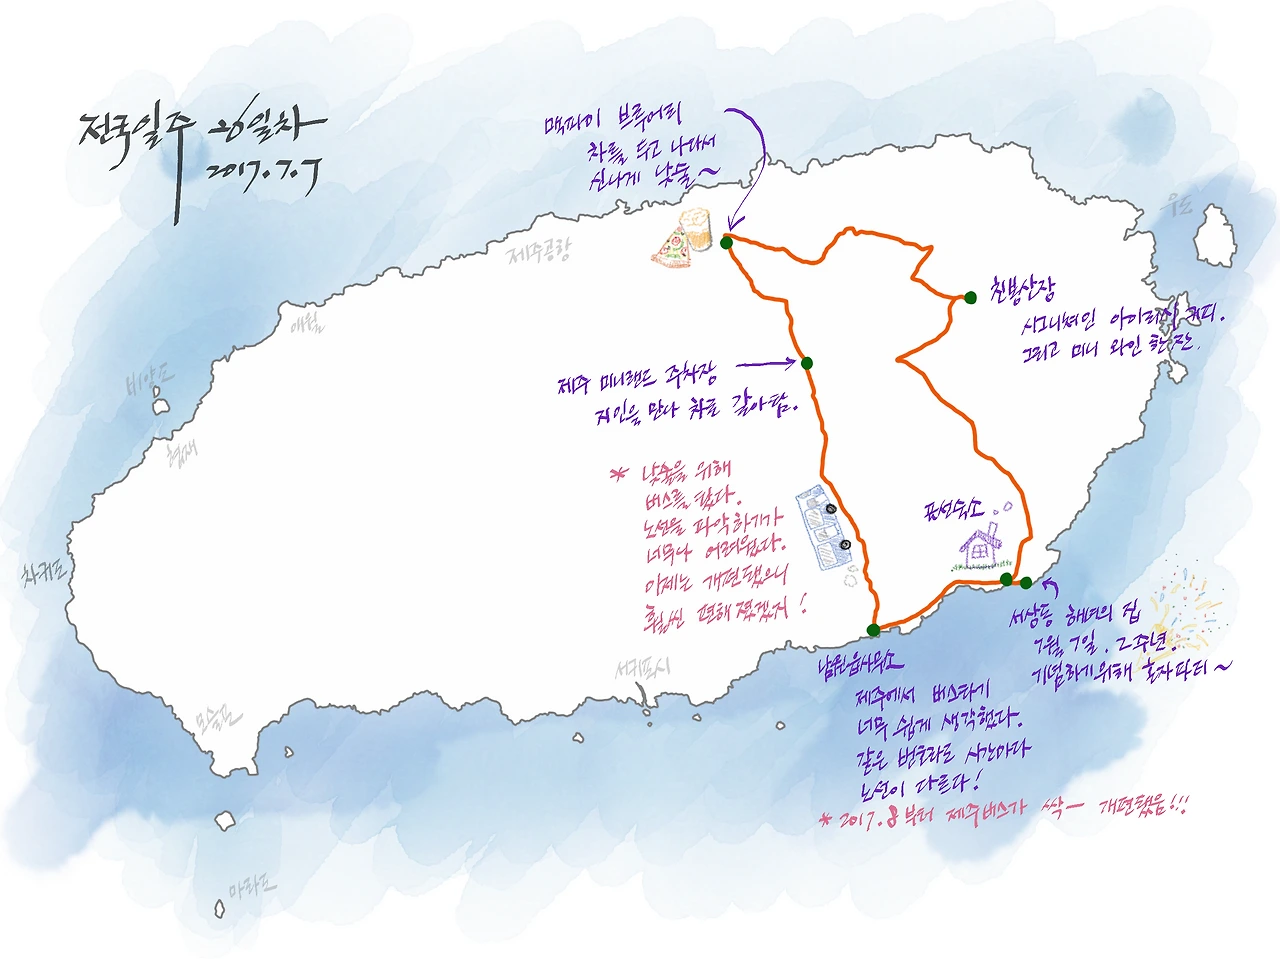 전국일주 26일차
2017.7.7
맥파이 브루어리
차를 두고 나와서
신나게 낮술~
우도
제주공항
애월
비양도
협재
차귀도
친봉산장
시그니쳐인 아이리시 커피.
그리고 미니 와인 한 잔.
제주 미니랜드 주차장
지인을 만나 차를 갈아탐.
* 낮술을 위해
버스를 탔다.
노선을 파악하기가
너무나 어려웠다.
이제는 개편됐으니
훨씬 편해졌겠지!
표선숙소
세상동 해녀의 집
7월 7일. 2주년.
기념하기위해 혼자파티~
남원읍사무소
제주에서 버스타기
너무 쉽게 생각했다.
같은 번호라도 시간마다
노선이 다르다!
* 2017.8부터 제주버스가 싹- 개편됐음!!!
서귀포시
모슬포
마라도